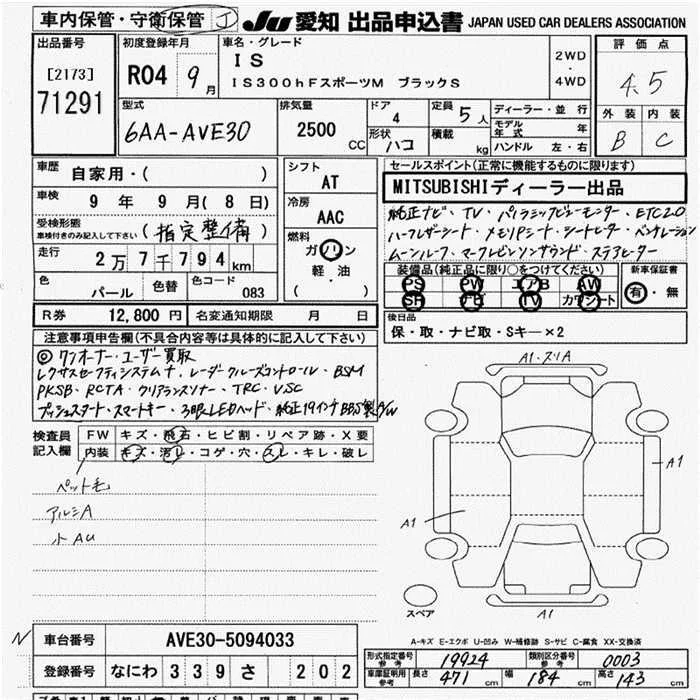 車内保管・守衛保管 J
JU 愛知 出品申込書 JAPAN USED CAR DEALERS ASSOCIATION
出品番号
[2173]
71291
初度登録年月
R04 9月
車名・グレード
IS
IS300hFスポーツM ブラックS
2WD
・
4WD
評価点
4.5
外装 内装
B C
型式
6AA-AVE30
排気量
2500 CC
ドア
4
形状
ハコ
定員
5人
積載
kg
ディーラー・並行
モデル年式 年
ハンドル 左・右
車歴
自家用・( )
車検
9年 9月(8日)
受検形態
車検付きのみ記入して下さい
(指定整備)
走行
2万7千794km
色
パール
色替
色コード
083
シフト
AT
冷房
AAC
燃料
ガソリン
軽・油
( )
セールスポイント(正常に機能するものに限ります)
MITSUBISHIディーラー出品
純正ナビ・TV・パノラミックビューモニター・ETC2.0
ハーフレザーシート・メモリPシート・シートヒーター・ベンチレーション
ムーンルーフ・マークレビンソンサウンド・ステアヒーター
装備品(純正品に限り○をつけてください)
PS PW エアB AW
SR ナビ TV カワシート
新車保証書
有・無
R券 12,800円
名変通知期限 月 日
後日品
保・取・ナビ取・Sキー×2
注意事項申告欄(不具合内容等は具体的に記入して下さい)
◎ワンオーナー・ユーザー買取
レクサスセーフティシステム+・レーダークルーズコントロール・BSM
PKSB・RCTA・クリアランスソナー・TRC・VSC
プッシュスタート・スマートキー・3眼LEDヘッド・純正19インチBBS製A/W
検査員記入欄
FW キズ・飛石・ヒビ割・リペア跡・X要
内装 キズ・汚レ・コゲ・穴・スレ・キレ・破レ
ペット毛
アルミA
小AU
A1・スリA
A1
A1
A1
スペア
A-キズ E-エクボ U-凹み W-補修跡 S-サビ C-腐食 XX-交換済
N
車台番号 AVE30-5094033
登録番号 なにわ 339 さ 202
形式指定番号
参考
19924
類別区分番号
参考
0003
車庫証明用
参考
長さ 471cm 幅 184cm 高さ 143cm